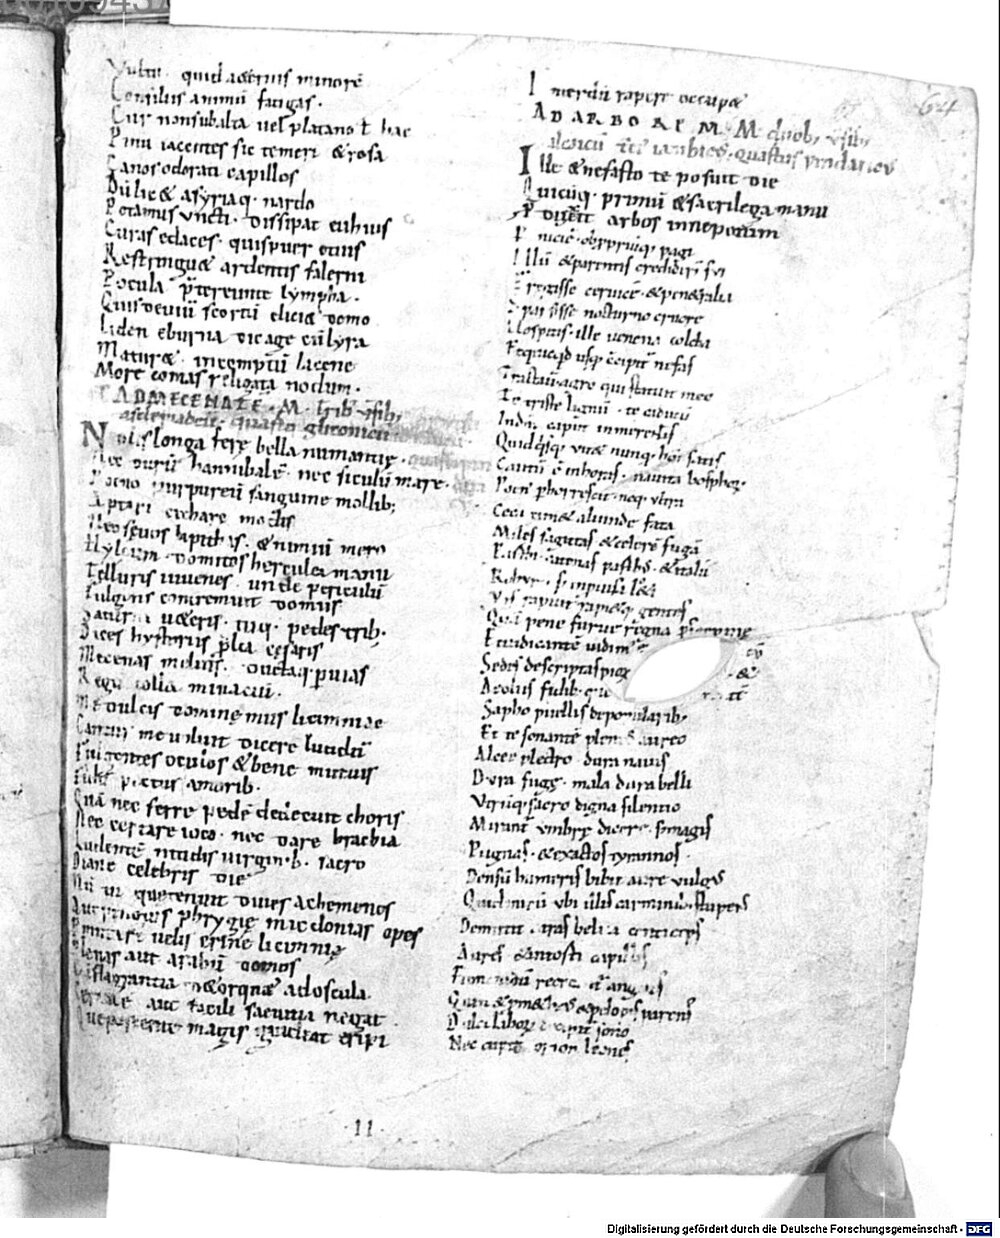 Vultu · quid aeternis minorē
Consiliis animū fatigas ·
Cur non sub alta vel platano ł hac
Pinu iacentes sic temere & rosa
Canos odorati capillos
Dū lic& assyriaq · nardo
Potamus uncti · dissipat euhius
Curas edaces · quis puer ocius
Restringu& ardentis falerni
Pocula p̄tereunte lympha ·
Quis deviū scortū elici& domo
Liden eburna dic age cū lyra
Matur& · incomptū lacene
More comas religata nodum ·
AD MECENATĒ · M ·
asclepiadeū · gliconicū
Nolis longa fere bella numantię ·
Nec durū hannibalē · nec siculū mare ·
Poeno purpureū sanguine mollib;
Aptari citharę modis
Nec sęvos lapithas · & nimiū mero
Hyleum domitos hercule a manu
Telluris iuvenes · unde periculū
Fulgens contremuit domus
Saturni veteris · tuq · pedestrib ·
Dices hystoriis p̄lia cesaris
Mecenas melius · ductaq p vias
Regū colla minaciū ·
Me dulcis dominę mus licimniae
Cantus me voluit dicere lucidū
Fulgentes oculos & bene mutuis
Fidū pectus amorib ·
Quā nec ferre pedē dedecuit choris
Nec certare ioco · nec dare brachia
Ludentē nitidis virginib · sacro
Diane celebris die
Nū tu que tenuit dives achemenes
Aut pinguis phrygię micdonias opes
Permutare velis crine licimnię
Plenas aut arabū domos
Cū flagrantia detorqu& ad oscula
Cervicē aut facili saevitia negat
Que poscente magis gaudeat eripi
Interdū rapere occup&
64
AD ARBOREM · M ·
alcaicū
Ille & nefasto te posuit die
Quicūq · primū & sacrilega manu
Produxit arbos in nepotum
Perniciē obprobriūq pagi
Illū & parentis crediderī sui
Fregisse cervicē · & penetralia
Sparsisse nocturno cruore
Hospitis · ille venena colcha
Et quicqd usq cōcipit nefas
Tractavit agro qui statuit meo
Te triste lignū · te caducū
Indn̄i caput inmerentis
Quid q̄sq vitet nunq · hoī satis
Cautū ē in horas · navita bosphor
Poen phorrescit · neq ultra
Ceca timet aliunde fata
Miles sagittas & celerē fugā
Parthi · catenas parthus & italū
Robur · s; inprovisa leti
Vis rapuit rapi&q gentes
Quā pene furvę regna
Et iudicantē vidim
Sedes descriptas pior
Aeoliis fidib · que
Sapho puellis de popularib;
Et te sonantē plenius aureo
Alcee plectro · dura navis
Dura fugę · mala dura belli
Utrūq · sacro digna silentio
Mirant umbrę dicere · s; magis
Pugnas · & exactos tyrannos ·
Densū humeris bibit aure vulgus
Quid mirū ubi illis carminib; stupens
Demittit atras belva centiceps
Aures · & intorti capillis
Eumenidū recreant angues
Quin & prometheus & pelopis parens
Dulci laborū sono
Nec curat orion leones
11
Digitalisierung gefördert durch die Deutsche Forschungsgemeinschaft · DFG